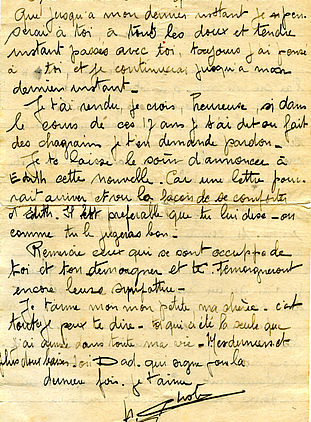 Que jusqu'a mon dernier instant je repen-
serai à toi à tous les doux et tendre
instant passés avec toi, toujours j'ai pensé
à toi, et je continuerai, jusqu'a mon
dernier instant -
Je t'ai rendu, je crois, heureuse, si dans
le cours de ces 17 ans je t'ai dit ou fait
des chagrins je t'en demande pardon -
Je te laisse le soin d'annoncer à
Edith cette nouvelle. Car une lettre pour-
rait arriver et vu la façon de se comporter
d'Edith. Il est préférable que tu lui dise - ou
comme tu le jugeras bon -
Remercie ceux qui se sont occuppé de
toi et t'on temoigner et te témoigneront
encore leurs sympathie -
Je t'aime mon mon petite ma chérie. c'est
tout ce pour te dire - toi qui a été la seule que
j'ai aimée dans toute ma vie - Mes derniers et
plus doux baisers - Dad. qui signe pour la
dernière fois. Je t'aime